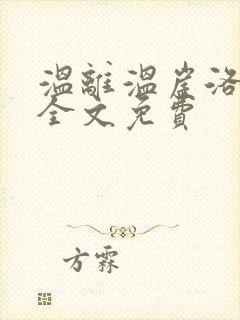 溫離溫崖洛
全文免費
方霖